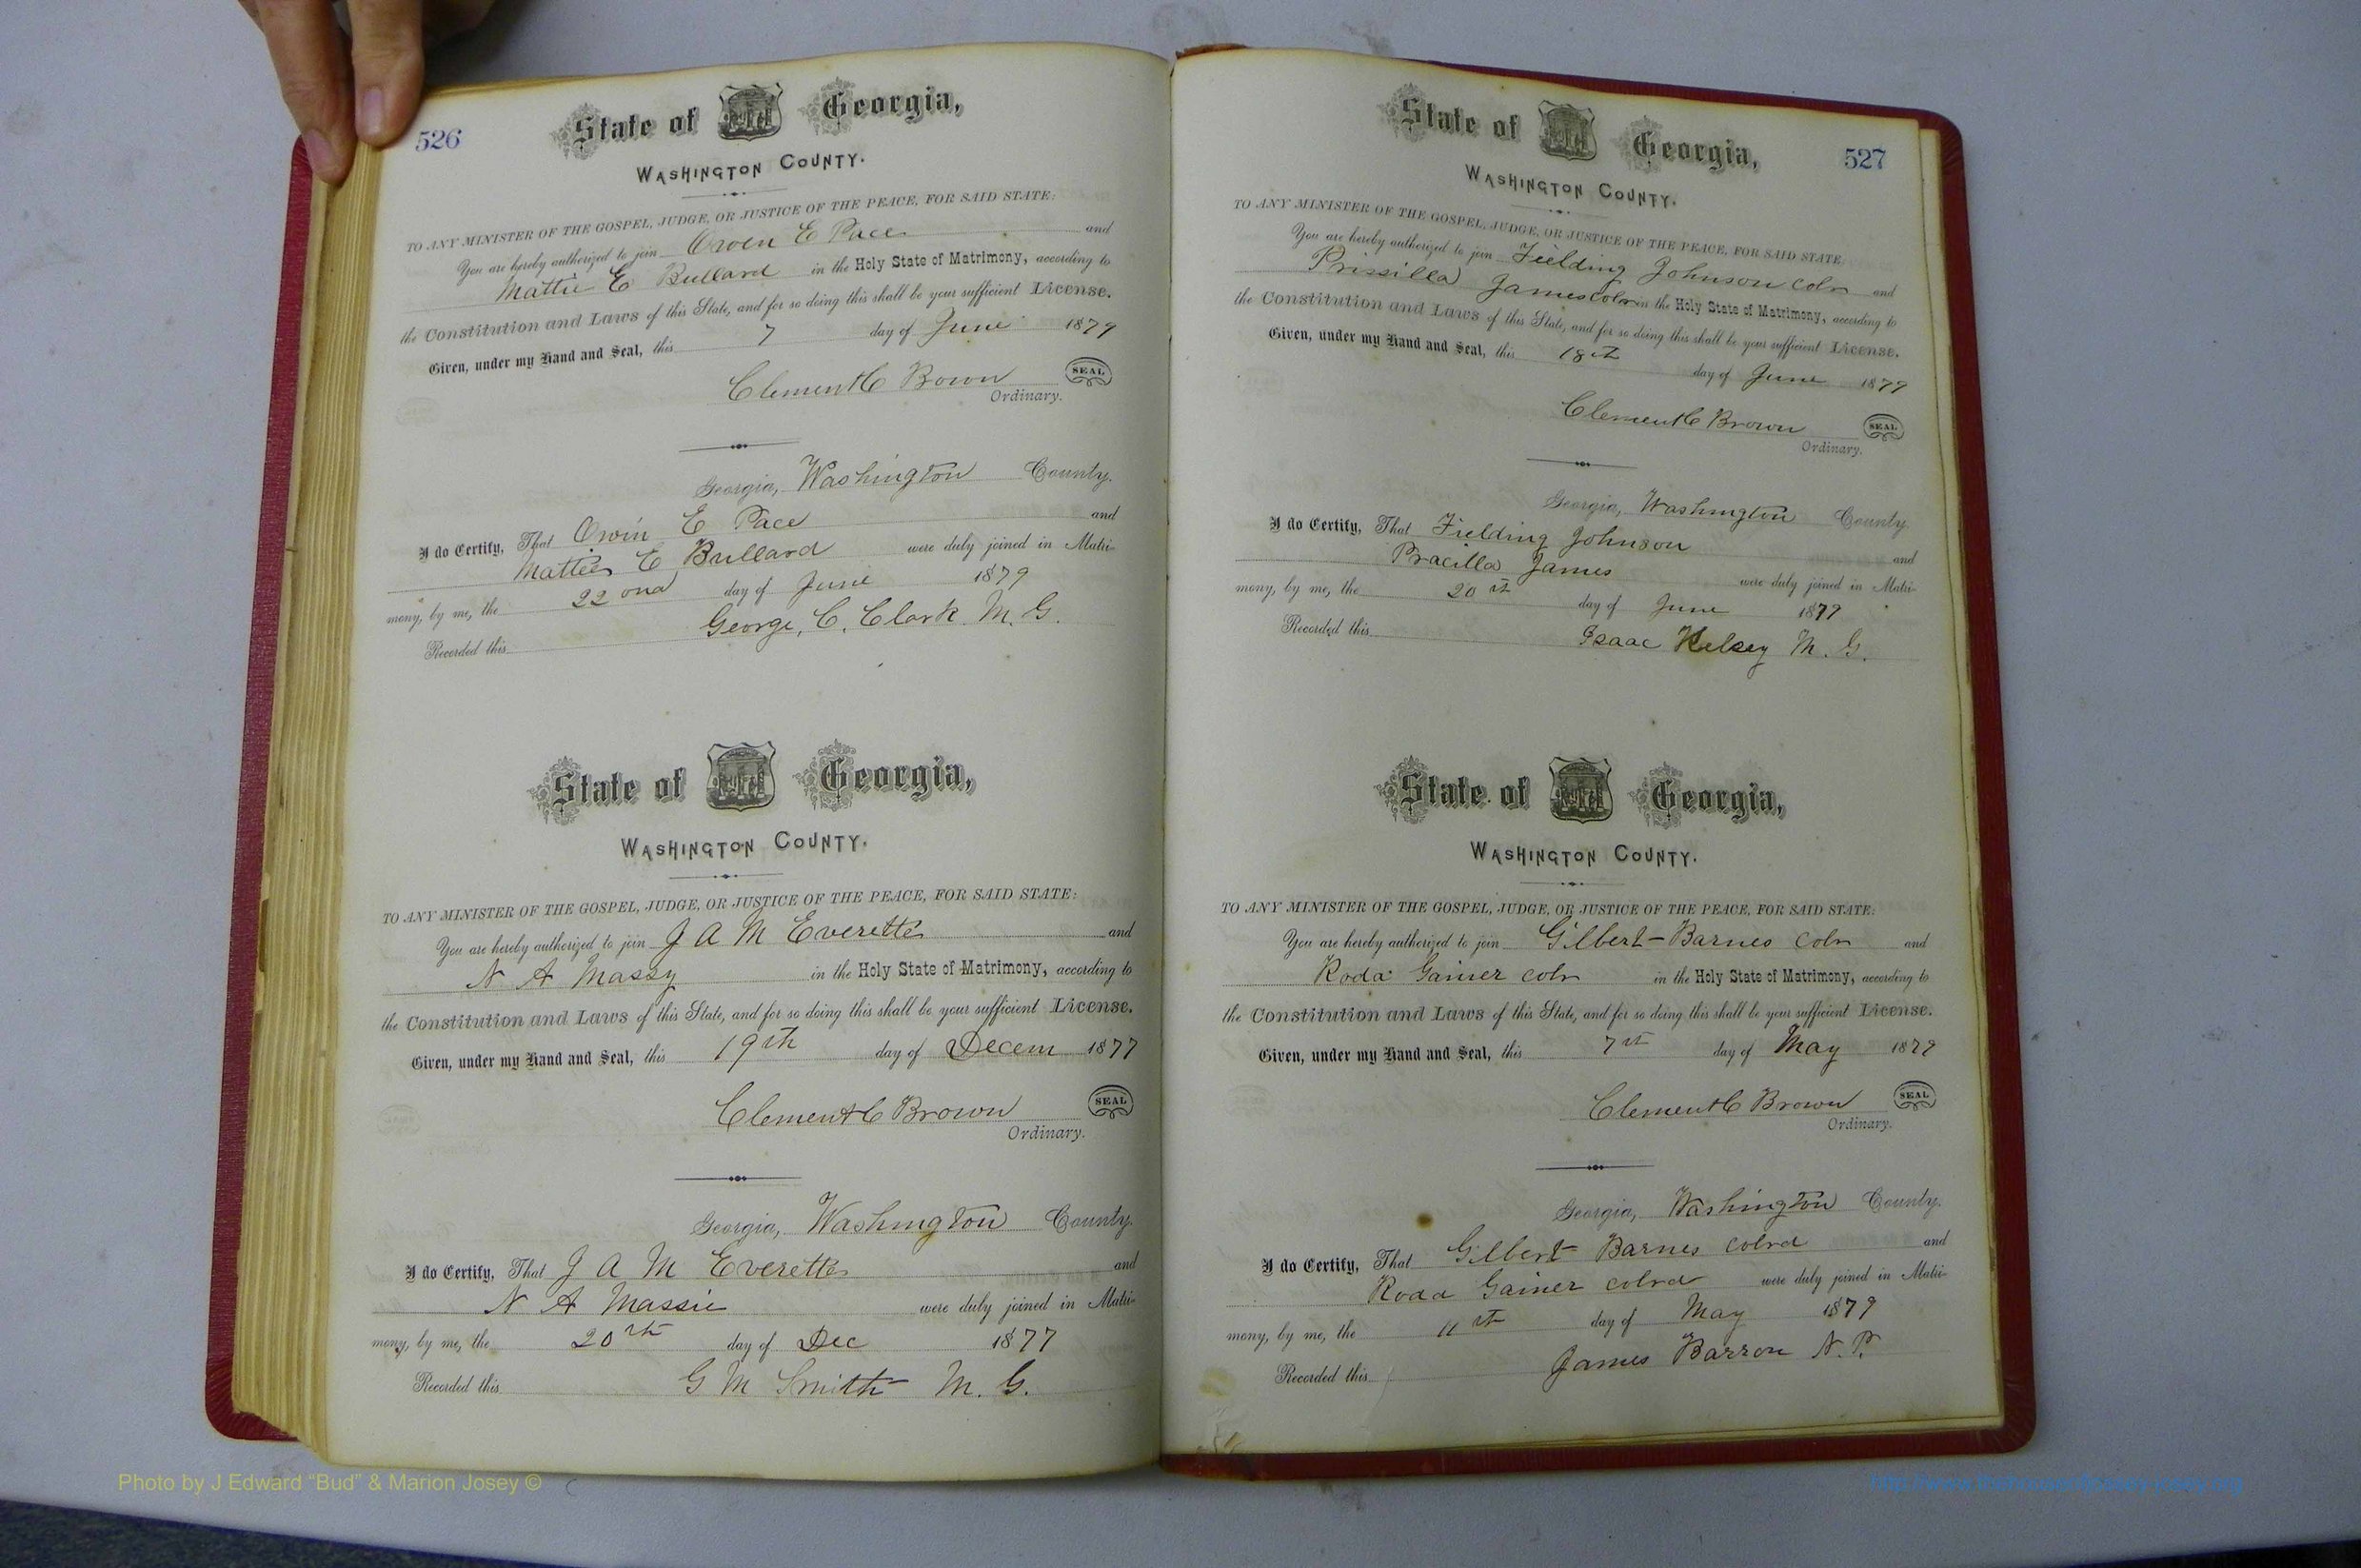 526
State of Georgia,
WASHINGTON COUNTY.
TO ANY MINISTER OF THE GOSPEL, JUDGE, OR JUSTICE OF THE PEACE, FOR SAID STATE:
You are hereby authorized to join Owen E Pace and
Mattie E Bullard in the Holy State of Matrimony, according to
the Constitution and Laws of this State, and for so doing this shall be your sufficient License.
Given, under my Hand and Seal, this 7 day of June 1879
Clement C Brown SEAL
Ordinary.
Georgia, Washington County.
I do Certify, That Orwin E Pace and
Mattie E Bullard were duly joined in Matri-
mony, by me, the 22ond day of June 1879
George. C. Clark M. G.
Recorded this
State of Georgia,
WASHINGTON COUNTY.
TO ANY MINISTER OF THE GOSPEL, JUDGE, OR JUSTICE OF THE PEACE, FOR SAID STATE:
You are hereby authorized to join J A M Everette and
N A Massy in the Holy State of Matrimony, according to
the Constitution and Laws of this State, and for so doing this shall be your sufficient License.
Given, under my Hand and Seal, this 19th day of Decem 1877
Clement C Brown SEAL
Ordinary.
Georgia, Washington County.
I do Certify, That J A M Everette and
N A Massie were duly joined in Matri-
mony, by me, the 20th day of Dec 1877
Recorded this G M Smith M. G.
527
State of Georgia,
WASHINGTON COUNTY.
TO ANY MINISTER OF THE GOSPEL, JUDGE, OR JUSTICE OF THE PEACE, FOR SAID STATE:
You are hereby authorized to join Fielding Johnson colr and
Prissilla James colr in the Holy State of Matrimony, according to
the Constitution and Laws of this State, and for so doing this shall be your sufficient License.
Given, under my Hand and Seal, this 18th day of June 1879
Clement C Brown SEAL
Ordinary.
Georgia, Washington County.
I do Certify, That Fielding Johnson and
Pracilla James were duly joined in Matri-
mony, by me, the 20th day of June 1879
Recorded this Isaac Kelsey M. G.
State of Georgia,
WASHINGTON COUNTY.
TO ANY MINISTER OF THE GOSPEL, JUDGE, OR JUSTICE OF THE PEACE, FOR SAID STATE:
You are hereby authorized to join Gilbert Barnes colr and
Roda Gainer colr in the Holy State of Matrimony, according to
the Constitution and Laws of this State, and for so doing this shall be your sufficient License.
Given, under my Hand and Seal, this 7th day of May 1879
Clement C Brown SEAL
Ordinary.
Georgia, Washington County.
I do Certify, That Gilbert Barnes colrd and
Roda Gainer colrd were duly joined in Matri-
mony, by me, the 11th day of May 1879
Recorded this James Barron N. P.
Photo by J Edward “Bud” & Marion Josey ©